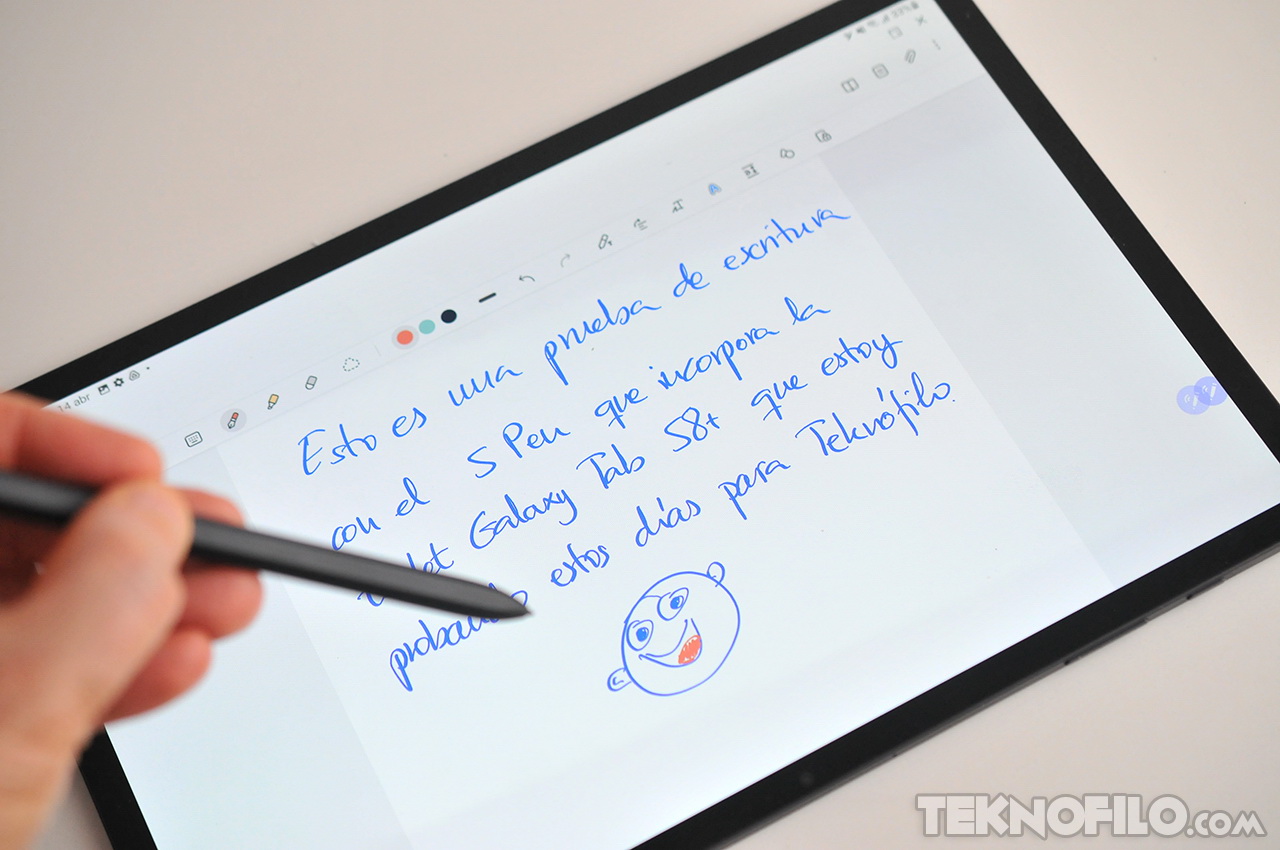 14 abr
Esto es una prueba de escritura
con el S Pen que incorpora la
tablet Galaxy Tab S8+ que estoy
probando estos días para Teknófilo.
TEKNOFILO.COM